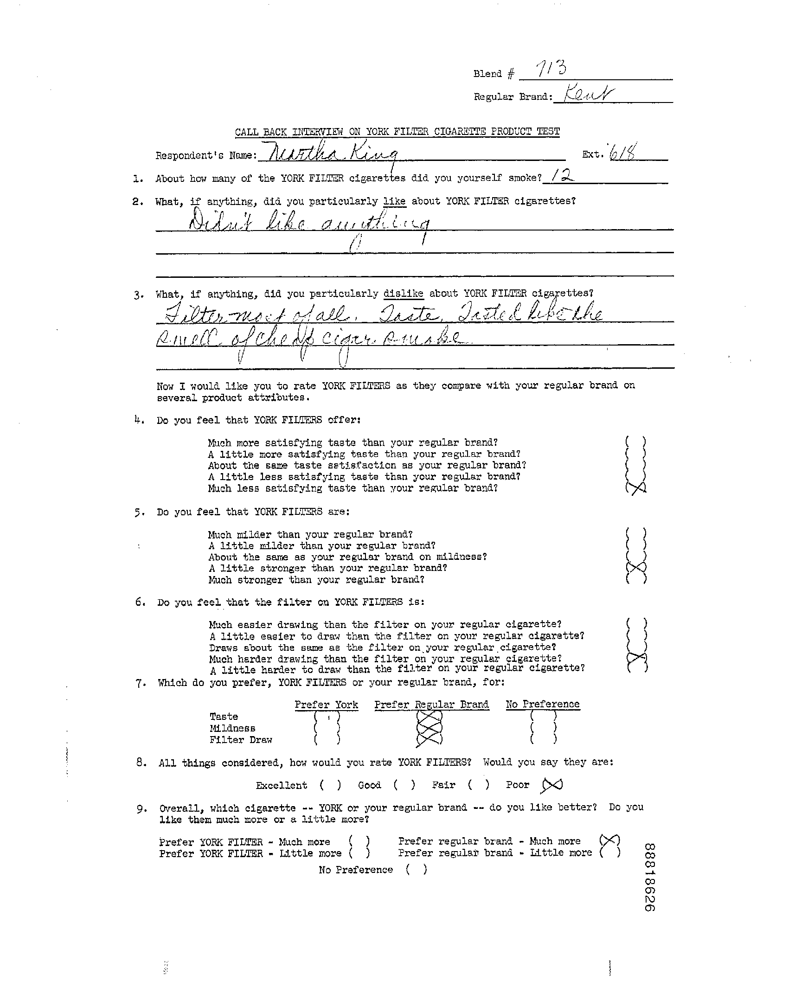 Blend # 713
Regular Brand: Kent
CALL BACK INTERVIEW ON YORK FILTER CIGARETTE PRODUCT TEST
Respondent's Name: Martha King Ext. 618
1. About how many of the YORK FILTER cigarettes did you yourself smoke? 12
2. What, if anything, did you particularly like about YORK FILTER cigarettes?
Didn't like anything
3. What, if anything, did you particularly dislike about YORK FILTER cigarettes?
Filter most of all. Taste. Tasted like the
smell of cheap cigar smoke
Now I would like you to rate YORK FILTERS as they compare with your regular brand on
several product attributes.
4. Do you feel that YORK FILTERS offer:
Much more satisfying taste than your regular brand? ( )
A little more satisfying taste than your regular brand? ( )
About the same taste satisfaction as your regular brand? ( )
A little less satisfying taste than your regular brand? ( )
Much less satisfying taste than your regular brand? (X)
5. Do you feel that YORK FILTERS are:
Much milder than your regular brand? ( )
A little milder than your regular brand? ( )
About the same as your regular brand on mildness? ( )
A little stronger than your regular brand? (X)
Much stronger than your regular brand? ( )
6. Do you feel that the filter on YORK FILTERS is:
Much easier drawing than the filter on your regular cigarette? ( )
A little easier to draw than the filter on your regular cigarette? ( )
Draws about the same as the filter on your regular cigarette? ( )
Much harder drawing than the filter on your regular cigarette? (X)
A little harder to draw than the filter on your regular cigarette? ( )
7. Which do you prefer, YORK FILTERS or your regular brand, for:
Prefer York Prefer Regular Brand No Preference
Taste ( ) (X) ( )
Mildness ( ) (X) ( )
Filter Draw ( ) (X) ( )
8. All things considered, how would you rate YORK FILTERS? Would you say they are:
Excellent ( ) Good ( ) Fair ( ) Poor (X)
9. Overall, which cigarette -- YORK or your regular brand -- do you like better? Do you
like them much more or a little more?
Prefer YORK FILTER - Much more ( ) Prefer regular brand - Much more (X)
Prefer YORK FILTER - Little more ( ) Prefer regular brand - Little more ( )
No Preference ( )
88818626